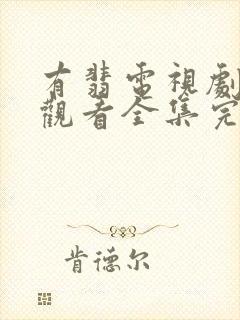 有翡電視劇
觀看全集完
肯德尔